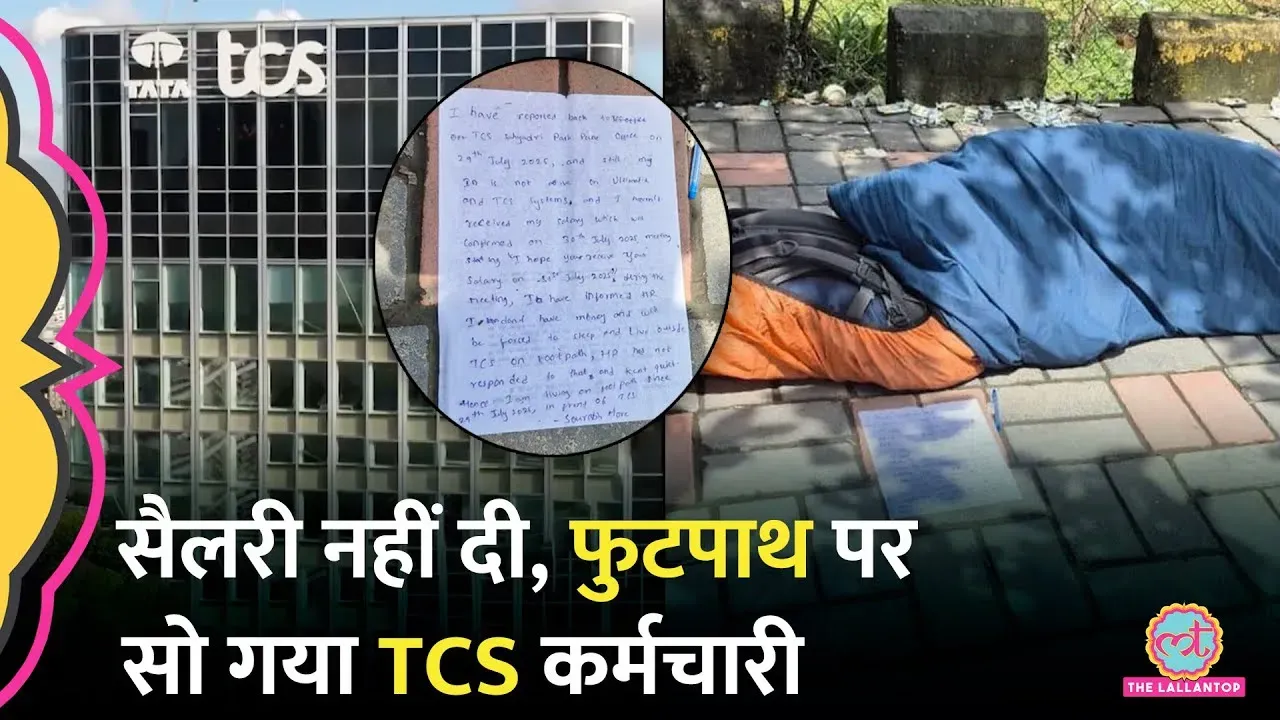 TATA
tcs
I have reported back to
on TCS Sahyadri Park Pune Office on
29th July 2025, and still my
ID is not active on Ultimatix
and TCS systems, and I
received my salary which was
confirmed on 30th July 2025 meeting
"I hope you receive your
salary on 31st July 2025" during the
meeting, I have informed HR
I have money and will
be forced to sleep and live outside
TCS on footpath, HR has not
responded to that, and kept quiet
Hence I am living on footpath since
29th July 2025, in front of TCS
- Saurabh More
सैलरी नहीं दी, फुटपाथ पर
सो गया TCS कर्मचारी
THE LALLANTOP